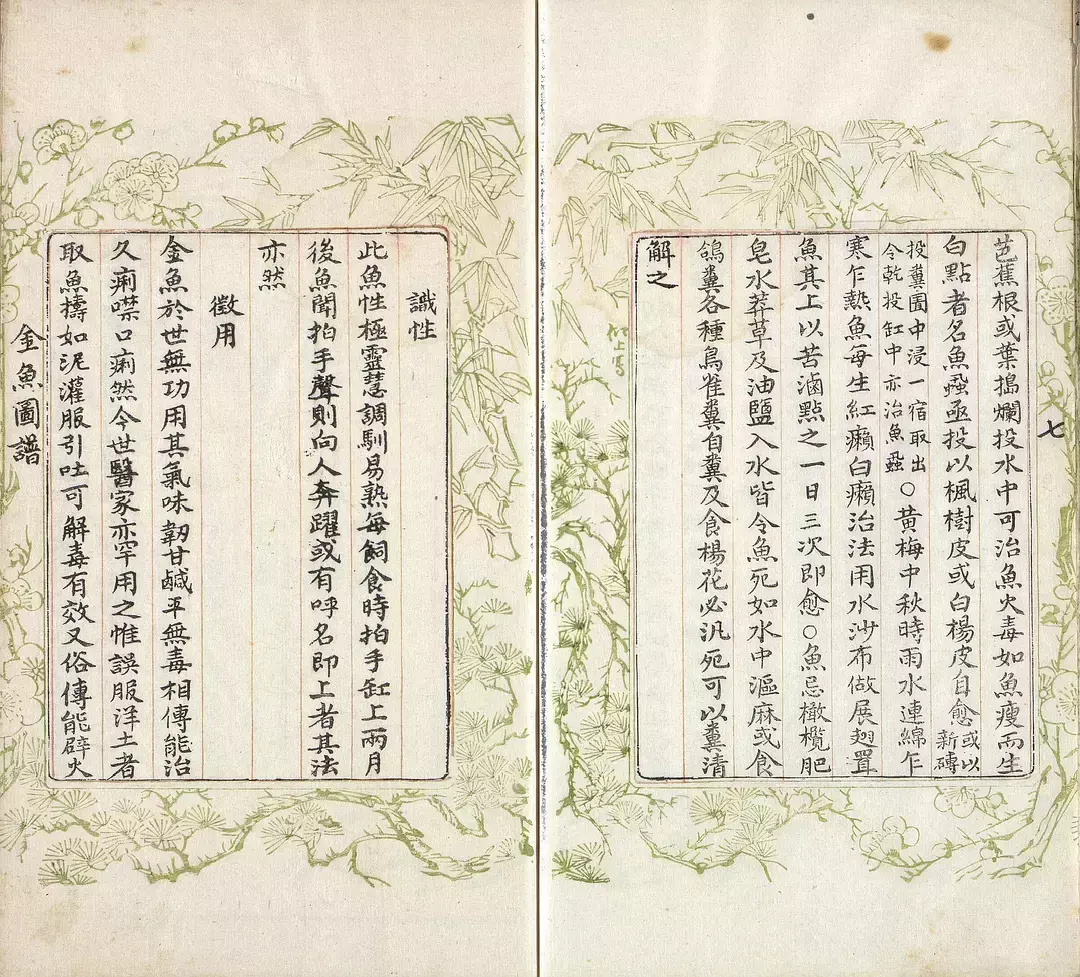 七
芭蕉根或葉搗爛投水中可治魚火毒如魚瘦而生
白點者名魚蝨亟投以楓樹皮或白楊皮自愈或以新磚
投糞囤中浸一宿取出令乾投缸中亦治魚蝨○黃梅中秋時雨水連綿乍
寒乍熱魚每生紅癩白癩治法用水沙布做展翅置
魚其上以苦滷點之一日三次即愈○魚忌橄欖肥
皂水莽草及油鹽入水皆令魚死如水中漚麻或食
鴿糞各種鳥雀糞自糞及食楊花必汎死可以糞清
解之
識性
此魚性極靈慧調馴易熟每飼食時拍手缸上兩月
後魚聞拍手聲則向人奔躍或有呼名即上者其法
亦然
徵用
金魚於世無功用其氣味韌甘鹹平無毒相傳能治
久痢噤口痢然今世醫家亦罕用之惟誤服洋土者
取魚擣如泥灌服引吐可解毒有效又俗傳能辟火
金魚圖譜